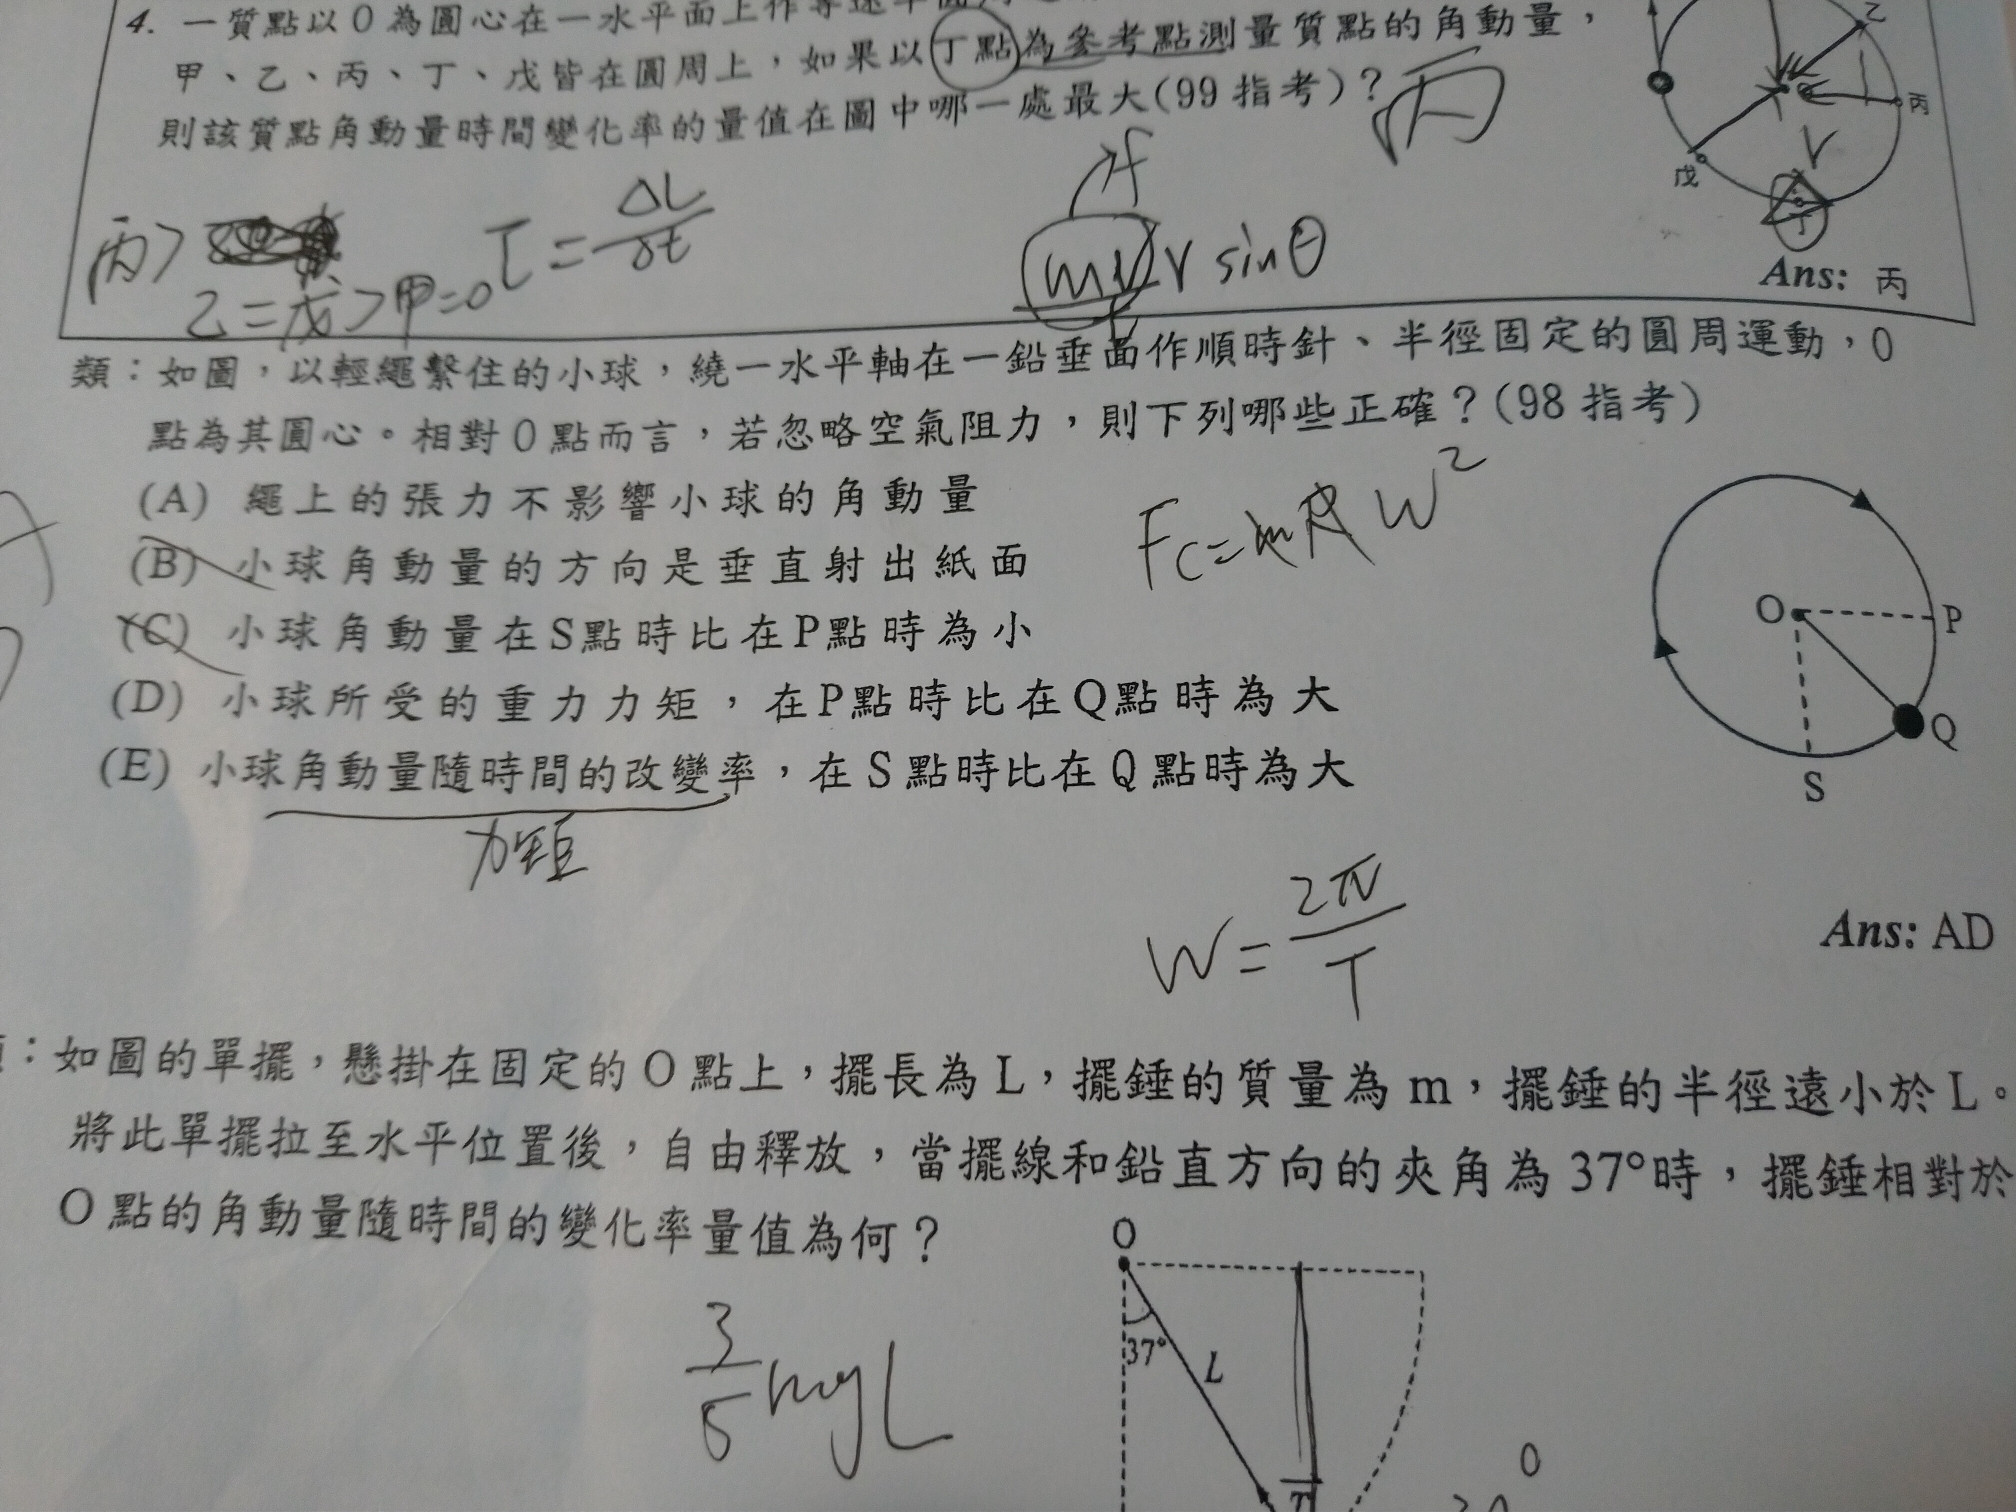 4. 一質點以O為圓心在一水平面上作等速率圓周
甲、乙、丙、丁、戊皆在圓周上，如果以丁點為參考點測量質點的角動量，
則該質點角動量時間變化率的量值在圖中哪一處最大(99指考)？
丙
乙
丙
戊
丁
r
丙>
乙=戊>甲=0
τ=ΔL/Δt
f
mv r sinθ
Ans: 丙
類：如圖，以輕繩繫住的小球，繞一水平軸在一鉛垂面作順時針、半徑固定的圓周運動，O
點為其圓心。相對O點而言，若忽略空氣阻力，則下列哪些正確？(98指考)
(A) 繩上的張力不影響小球的角動量
(B) 小球角動量的方向是垂直射出紙面
(C) 小球角動量在S點時比在P點時為小
(D) 小球所受的重力力矩，在P點時比在Q點時為大
(E) 小球角動量隨時間的改變率，在S點時比在Q點時為大
力矩
Fc=mRW²
O
P
Q
S
W=2π/T
Ans: AD
：如圖的單擺，懸掛在固定的O點上，擺長為L，擺錘的質量為m，擺錘的半徑遠小於L。
將此單擺拉至水平位置後，自由釋放，當擺線和鉛直方向的夾角為37°時，擺錘相對於
O點的角動量隨時間的變化率量值為何？
3/5 mgL
O
37°
L